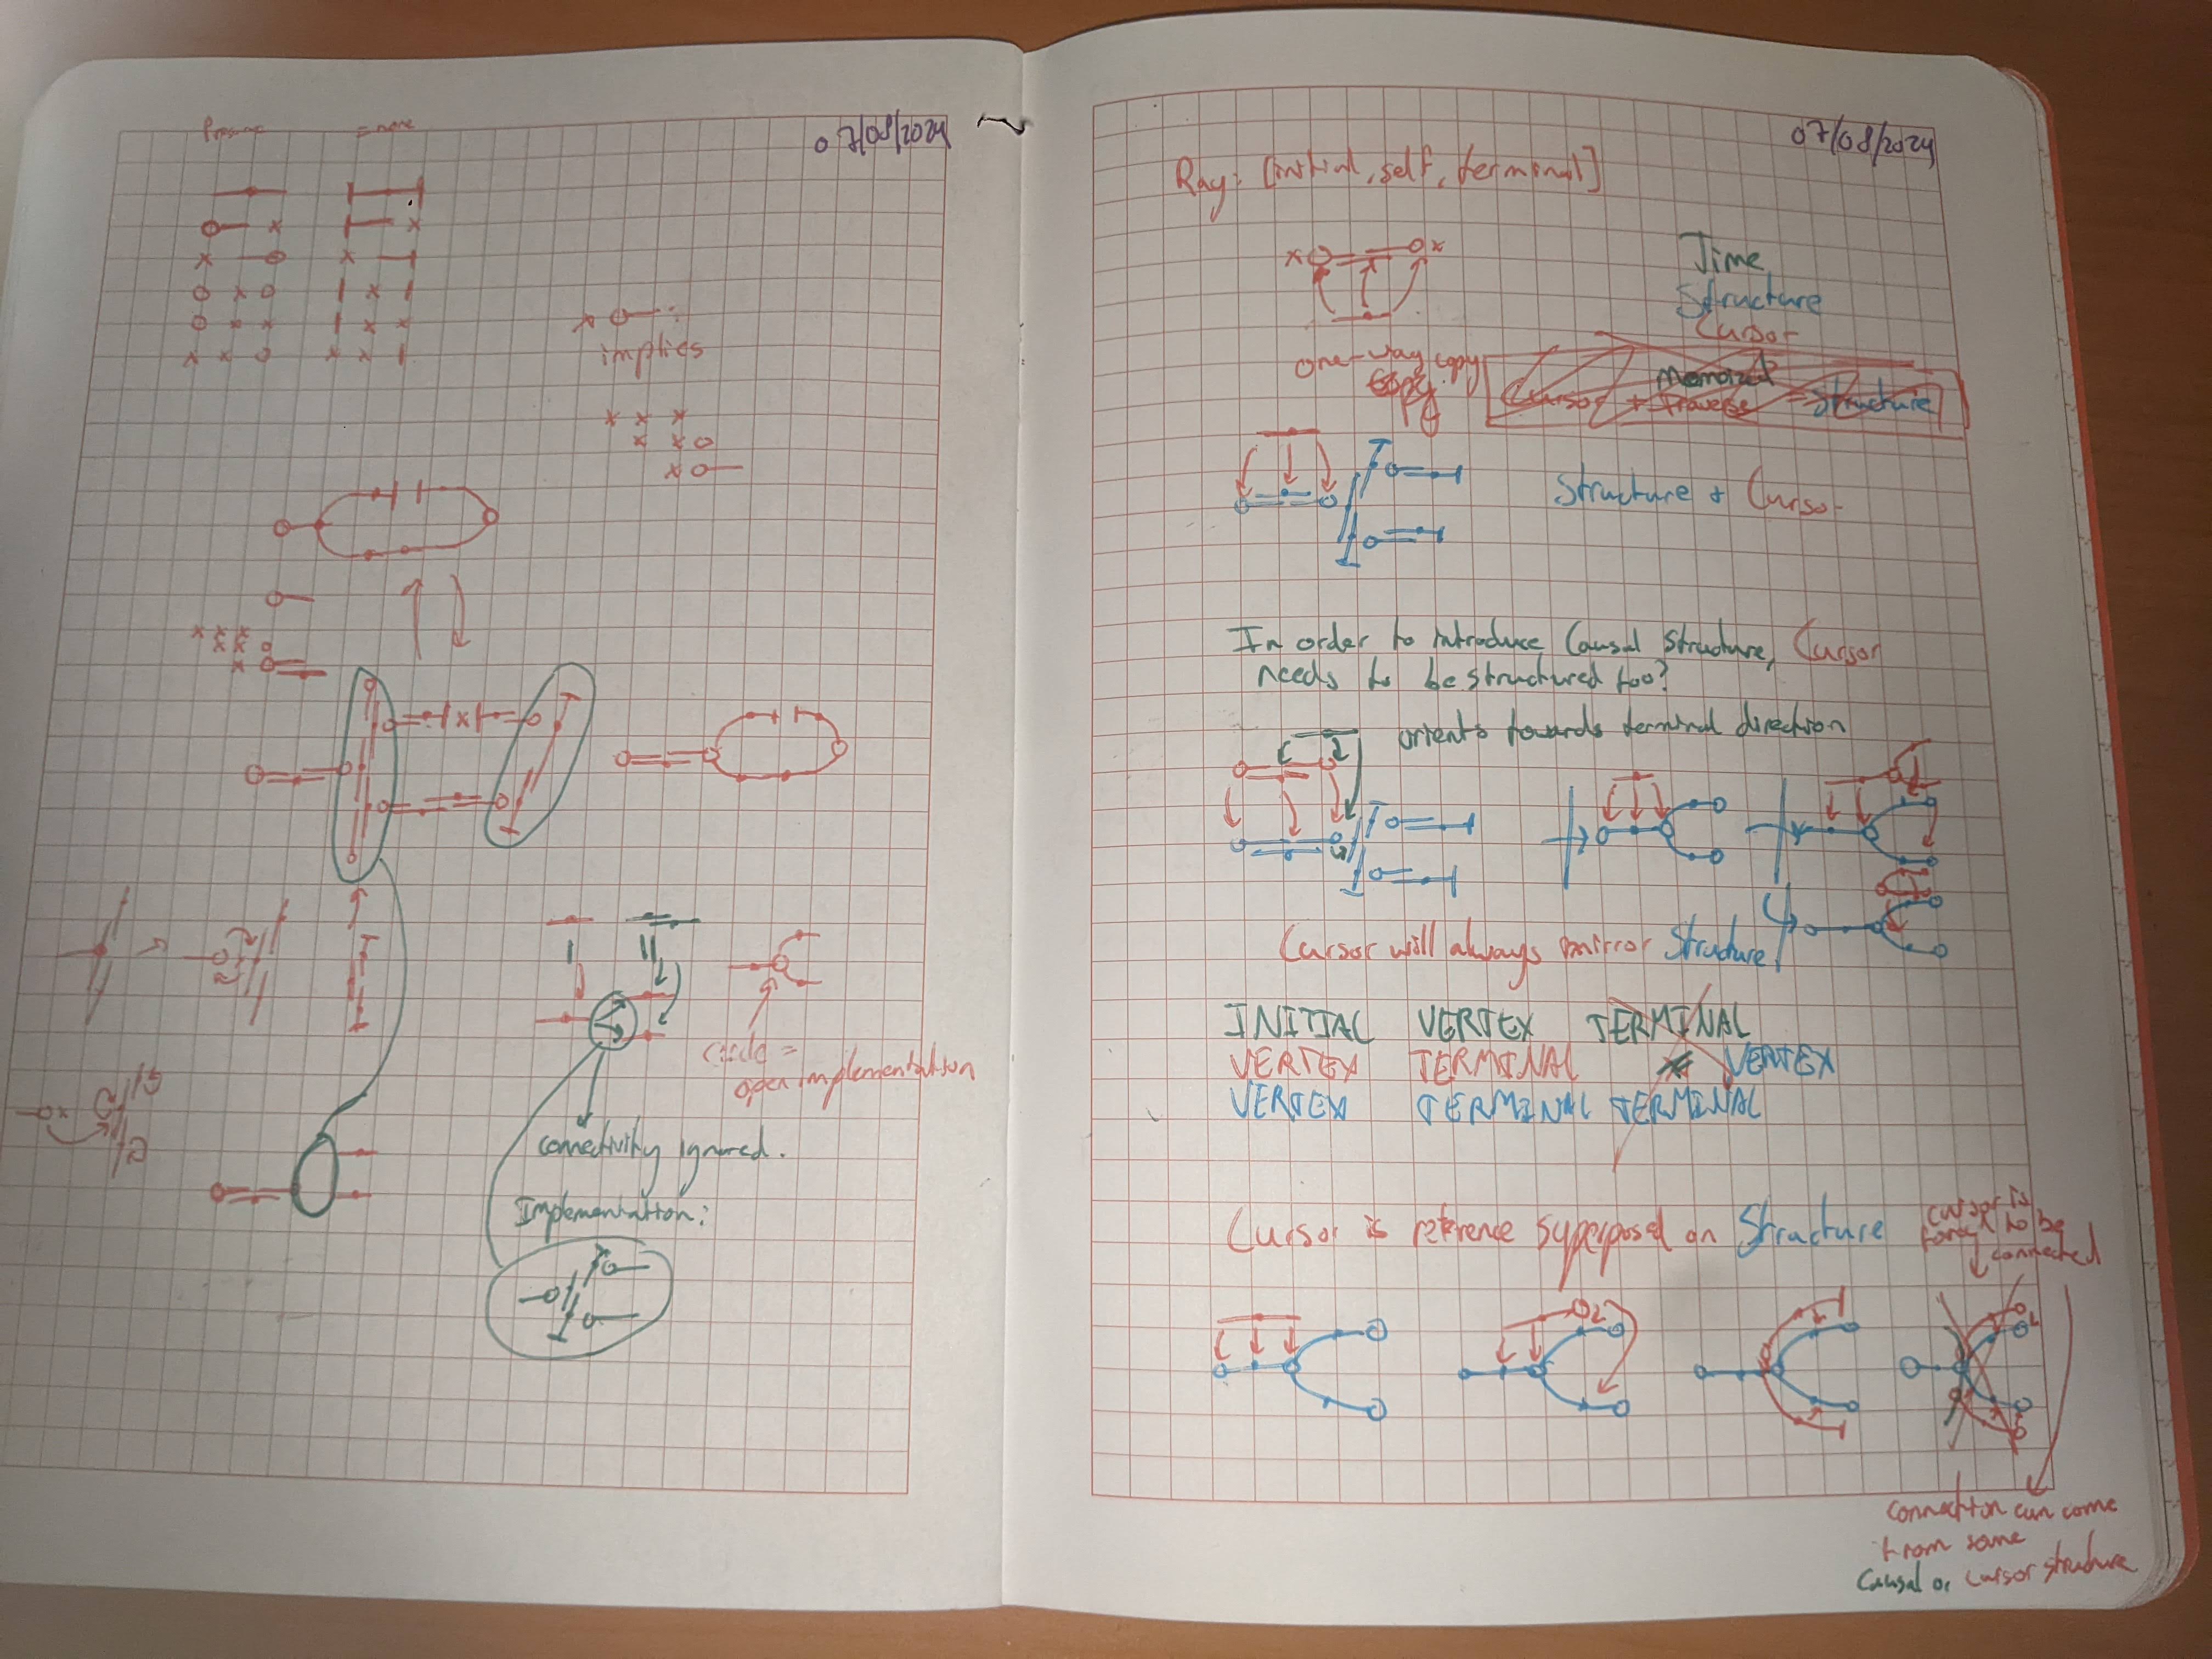 07/08/2024
= none
implies
circle =
open implementation
connectivity ignored.
Implementation:
07/08/2024
Ray: [initial, self, terminal]
Time,
Structure
Cursor
one-way copy
copy
Memoized
Cursor + Traverse = Structure
Structure + Cursor
In order to introduce Causal Structure, Cursor
needs to be structured too?
orients towards terminal direction
Cursor will always mirror Structure
INITIAL VERTEX TERMINAL
VERTEX TERMINAL VERTEX
VERTEX TERMINAL TERMINAL
Cursor is reference superposed on Structure
cursor is
to be
connected
connection can come
from same
Causal or cursor structure